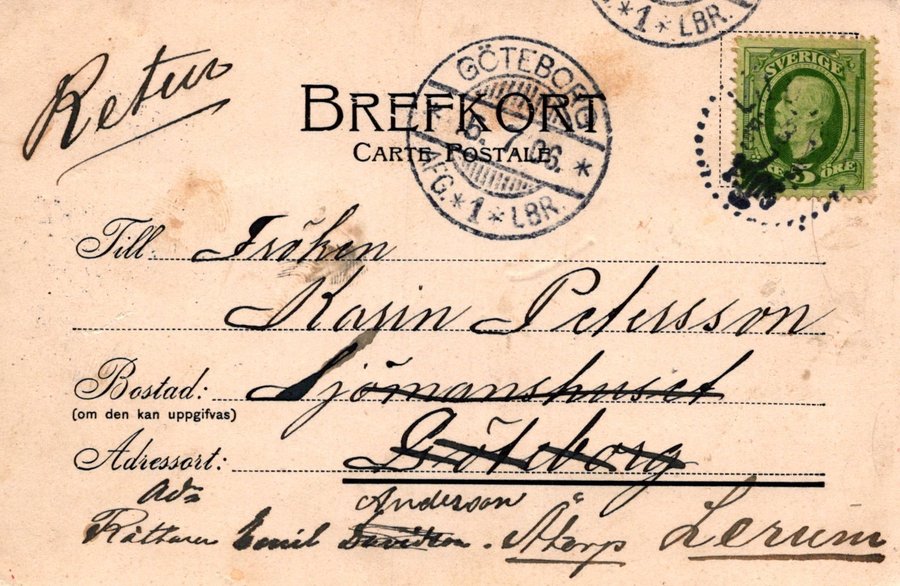 1 * LBR.
SVERIGE
5 ÖRE
Retur
GÖTEBORG
BREFKORT
CARTE POSTALE
AFG. * 1 * LBR.
Till: Fröken
Karin Petersson
Bostad: Sjömanshuset
(om den kan uppgifvas)
Adressort: Göteborg
Anderson
Emil Återp Lerum